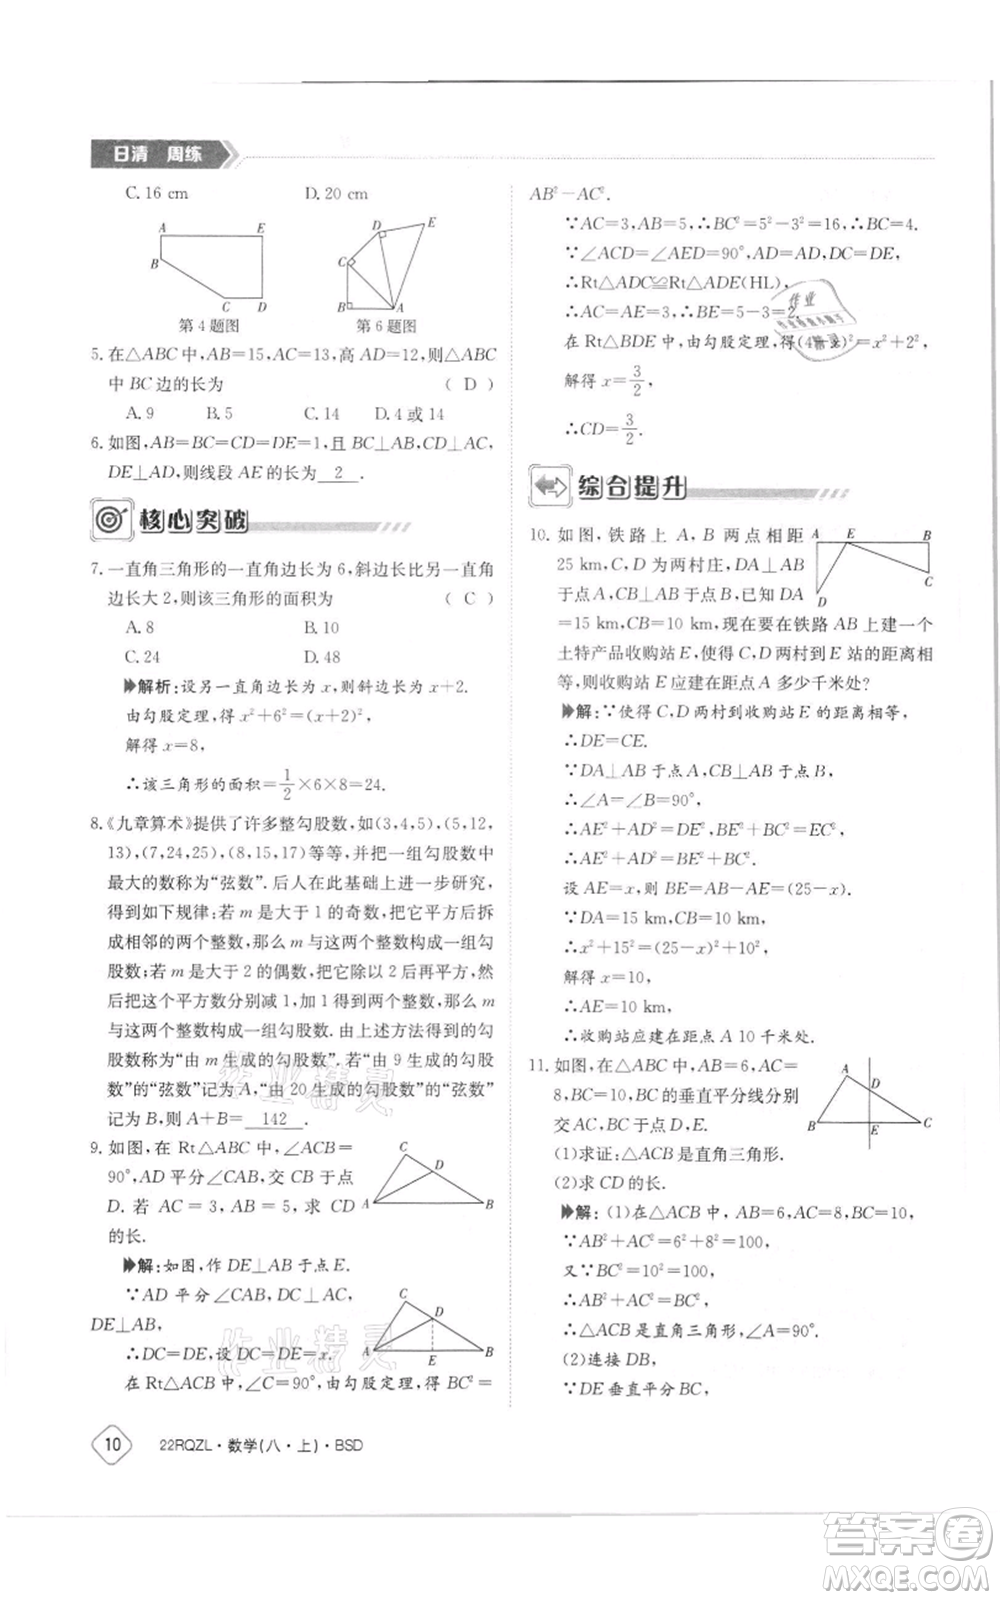 日清 周练
C. 16 cm D. 20 cm
A E B C D
第4题图
D E C B A
第6题图
5. 在△ABC中,AB=15,AC=13,高AD=12,则△ABC
中BC边的长为 ( D )
A. 9 B. 5 C. 14 D. 4或14
6. 如图,AB=BC=CD=DE=1,且BC⊥AB,CD⊥AC,
DE⊥AD,则线段AE的长为 2 .
核心突破
7. 一直角三角形的一直角边长为6,斜边长比另一直角
边长大2,则该三角形的面积为 ( C )
A. 8 B. 10
C. 24 D. 48
解析:设另一直角边长为x,则斜边长为x+2.
由勾股定理,得x²+6²=(x+2)²,
解得x=8,
∴该三角形的面积=1/2×6×8=24.
8.《九章算术》提供了许多整勾股数,如(3,4,5),(5,12,
13),(7,24,25),(8,15,17)等等,并把一组勾股数中
最大的数称为“弦数”.后人在此基础上进一步研究,
得到如下规律:若m是大于1的奇数,把它平方后拆
成相邻的两个整数,那么m与这两个整数构成一组勾
股数;若m是大于2的偶数,把它除以2后再平方,然
后把这个平方数分别减1,加1得到两个整数,那么m
与这两个整数构成一组勾股数.由上述方法得到的勾
股数称为“由m生成的勾股数”.若“由9生成的勾股
数”的“弦数”记为A,“由20生成的勾股数”的“弦数”
记为B,则A+B= 142 .
9. 如图,在Rt△ABC中,∠ACB=
90°,AD平分∠CAB,交BC于点
D. 若AC=3,AB=5,求CD
的长.
C D A B
解:如图,作DE⊥AB于点E.
∵AD平分∠CAB,DC⊥AC,
DE⊥AB,
∴DC=DE,设DC=DE=x.
C D A E B
在Rt△ACB中,∠C=90°,由勾股定理,得BC²=
10 22RQZL·数学(八·上)·BSD
AB²-AC².
∵AC=3,AB=5,∴BC²=5²-3²=16,∴BC=4.
∵∠ACD=∠AED=90°,AD=AD,DC=DE,
∴Rt△ADC≌Rt△ADE(HL),
∴AC=AE=3,∴BE=5-3=2.
在Rt△BDE中,由勾股定理,得(4-x)²=x²+2²,
解得x=3/2,
∴CD=3/2.
综合提升
10. 如图,铁路上A,B两点相距
25 km,C,D为两村庄,DA⊥AB
于点A,CB⊥AB于点B,已知DA
=15 km,CB=10 km,现在要在铁路AB上建一个
土特产品收购站E,使得C,D两村到E站的距离相
等,则收购站E应建在距点A多少千米处?
A E B C D
解:∵使得C,D两村到收购站E的距离相等,
∴DE=CE.
∵DA⊥AB于点A,CB⊥AB于点B,
∴∠A=∠B=90°,
∴AE²+AD²=DE²,BE²+BC²=EC²,
∴AE²+AD²=BE²+BC².
设AE=x,则BE=AB-AE=(25-x).
∵DA=15 km,CB=10 km,
∴x²+15²=(25-x)²+10²,
解得x=10,
∴AE=10 km,
∴收购站应建在距点A 10千米处.
11. 如图,在△ABC中,AB=6,AC=
8,BC=10,BC的垂直平分线分别
交AC,BC于点D,E.
(1)求证:△ABC是直角三角形;
(2)求CD的长.
A D B E C
解:(1)在△ABC中,AB=6,AC=8,BC=10,
∵AB²+AC²=6²+8²=100,
又∵BC²=10²=100,
∴AB²+AC²=BC²,
∴△ABC是直角三角形,∠A=90°.
(2)连接DB,
∵DE垂直平分BC,
作业精灵
作业精灵
答案卷
MXQE.COM